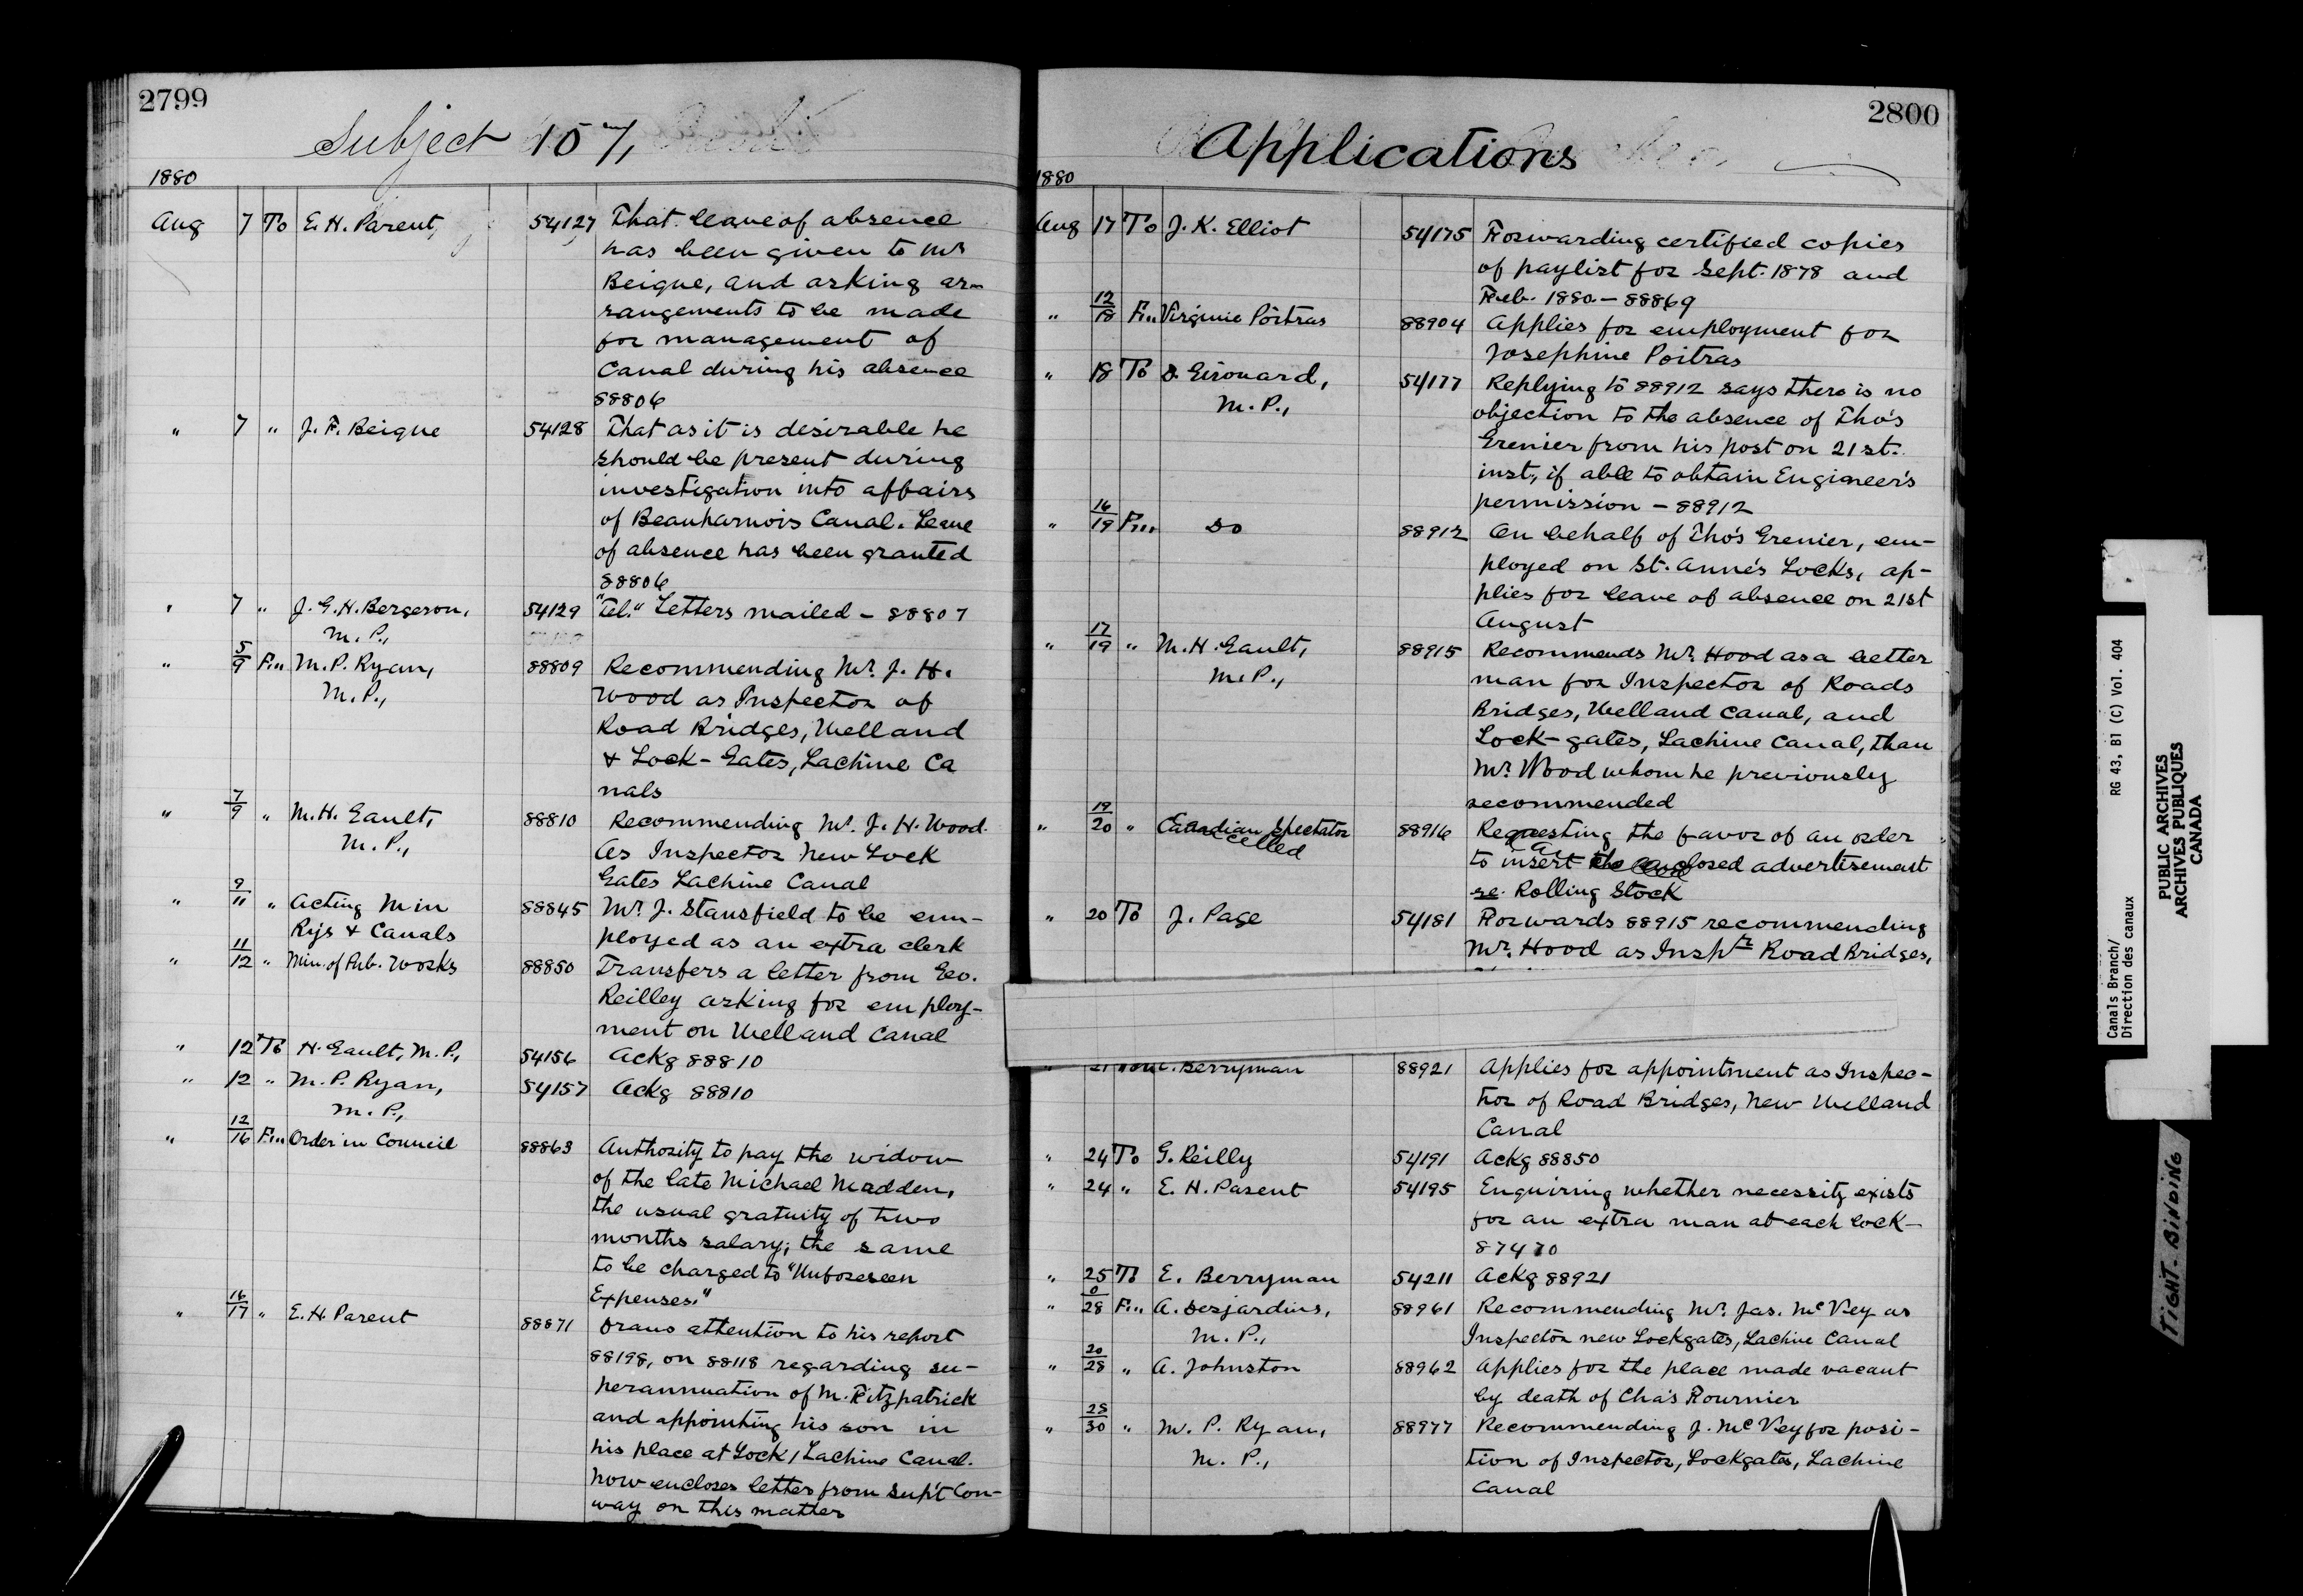 2799
Subject 107,
1880
Aug 7 To E. H. Parent, 54127 That leave of absence
has been given to Mr
Beique, and asking ar-
rangements to be made
for management of
Canal during his absence
88806
" 7 " J. F. Beique 54128 That as it is desirable he
should be present during
investigation into affairs
of Beauharnois Canal. Leave
of absence has been granted
88806
" 7 " J. G. H. Bergeron, 54129 "Tel." Letters mailed - 88807
M. P.,
" 5/9 Fm M. P. Ryan, 88809 Recommending Mr. J. H.
M. P., Wood as Inspector of
Road Bridges, Welland
& Lock-Gates, Lachine Ca
nals
" 7/9 " M. H. Gault, 88810 Recommending Mr. J. H. Wood.
M. P., As Inspector New Lock
Gates Lachine Canal
" 9/11 " Acting Min 88845 Mr. J. Stansfield to be em-
Rys & Canals ployed as an extra clerk
" 11/12 " Min. of Pub. Works 88850 Transfers a letter from Geo.
Reilley asking for employ-
ment on Welland Canal
" 12 To H. Gault, M. P., 54156 Ackg 88810
" 12 " M. P. Ryan, 54157 Ackg 88810
M. P.,
" 12/16 Fm Order in Council 88863 Authority to pay the widow
of the late Michael Madden,
the usual gratuity of two
months salary; the same
to be charged to "Unforeseen
Expenses."
" 16/17 " E. H. Parent 88871 Draws attention to his report
88198, on 88118 regarding su-
perannuation of M. Fitzpatrick
and appointing his son in
his place at Lock 1 Lachine Canal.
Now encloses letter from Sup't Con-
way on this matter
2800
Applications
1880
Aug 17 To J. K. Elliot 54175 Forwarding certified copies
of paylist for Sept. 1878 and
Feb. 1880 - 88869
" 12/18 Fm Virginie Poitras 88904 Applies for employment for
Josephine Poitras
" 18 To D. Girouard, 54177 Replying to 88912 says there is no
M. P., objection to the absence of Tho's
Grenier from his post on 21st.
inst, if able to obtain Engineer's
permission - 88912
" 16/19 Fm Do 88912 On behalf of Tho's Grenier, em-
ployed on St. Anne's Locks, ap-
plies for leave of absence on 21st
August
" 17/19 " M. H. Gault, 88915 Recommends Mr. Hood as a better
M. P., man for Inspector of Roads
Bridges, Welland Canal, and
Lock-gates, Lachine Canal, than
Mr. Wood whom he previously
recommended
" 19/20 " Canadian Spectator 88916 Requesting the favor of an order
Cancelled to insert the enclosed advertisement
re. Rolling Stock
" 20 To J. Page 54181 Forwards 88915 recommending
Mr. Hood as Inspr Road Bridges,
Berryman 88921 Applies for appointment as Inspec-
tor of Road Bridges, New Welland
Canal
" 24 To G. Reilly 54191 Ackg 88850
" 24 " E. H. Parent 54195 Enquiring whether necessity exists
for an extra man at each lock-
87470
" 25 To E. Berryman 54211 Ackg 88921
" 0/28 Fm A. Desjardins, 88961 Recommending Mr. Jas. McVey as
M. P., Inspector new Lockgates, Lachine Canal
" 20/28 " A. Johnston 88962 Applies for the place made vacant
by death of Cha's Fournier
" 28/30 " M. P. Ryan, 88977 Recommending J. McVey for posi-
M. P., tion of Inspector, Lockgates, Lachine
Canal
Canals Branch/ RG 43, B1 (C) Vol. 404
Direction des canaux
PUBLIC ARCHIVES
ARCHIVES PUBLIQUES
CANADA
TIGHT BINDING